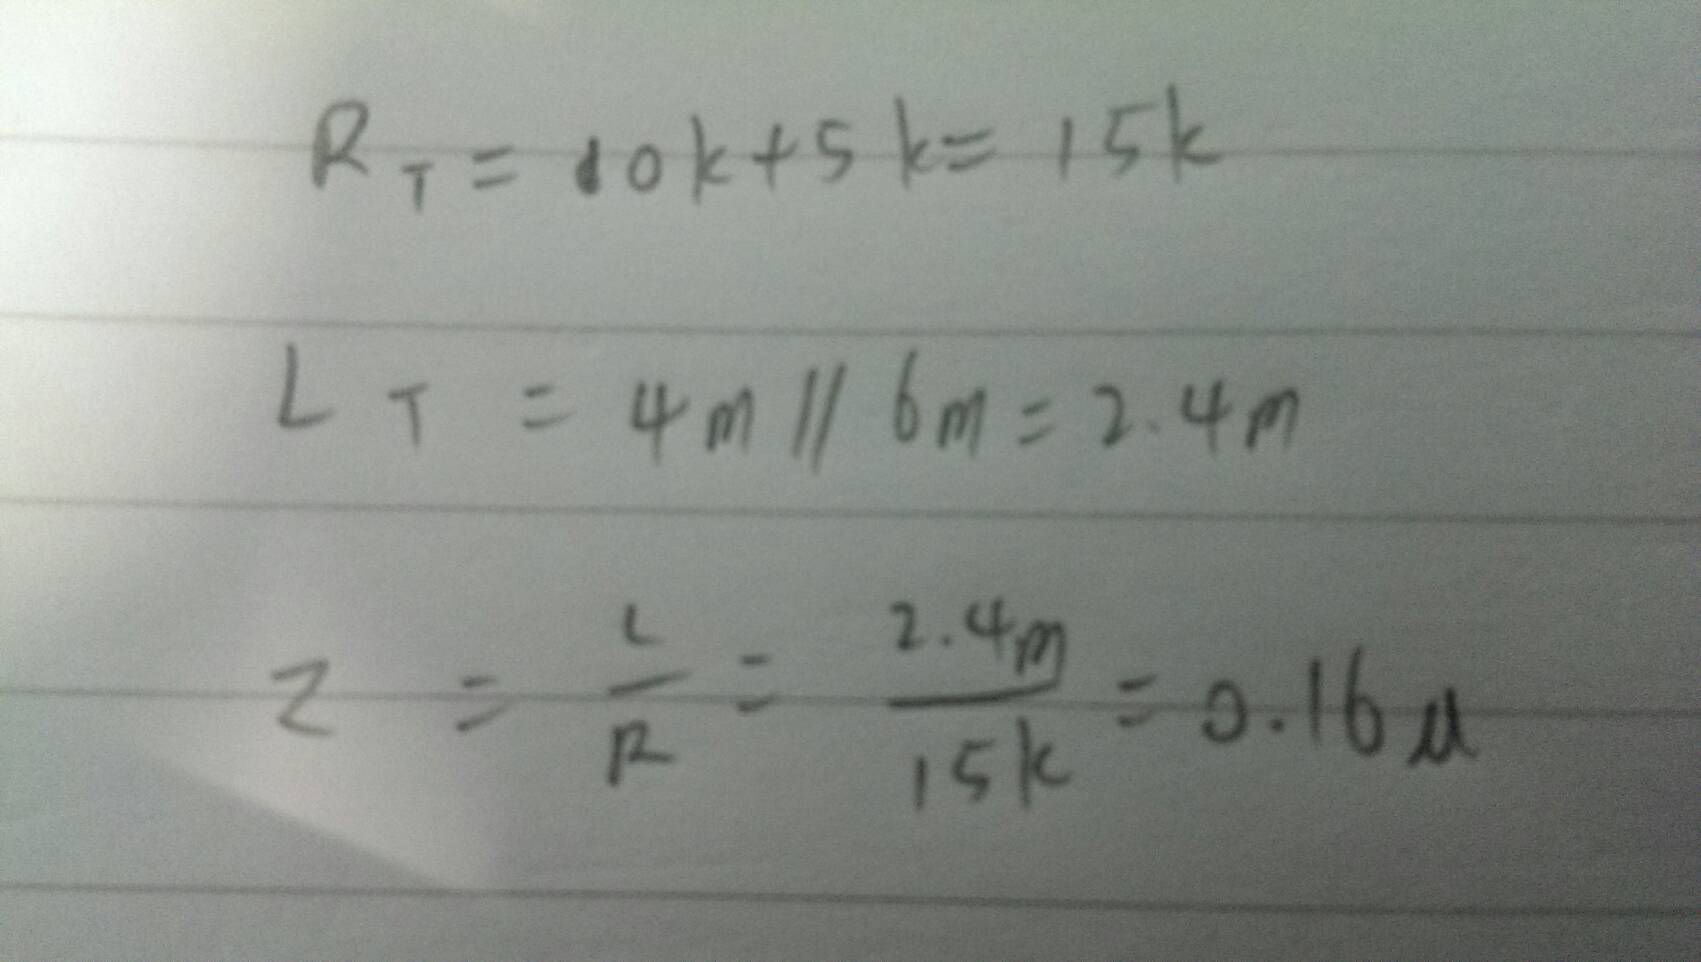 R_T = 10k+5k = 15k
L_T = 4m // 6m = 2.4m
Z = L/R = 2.4m/15k = 0.16μ